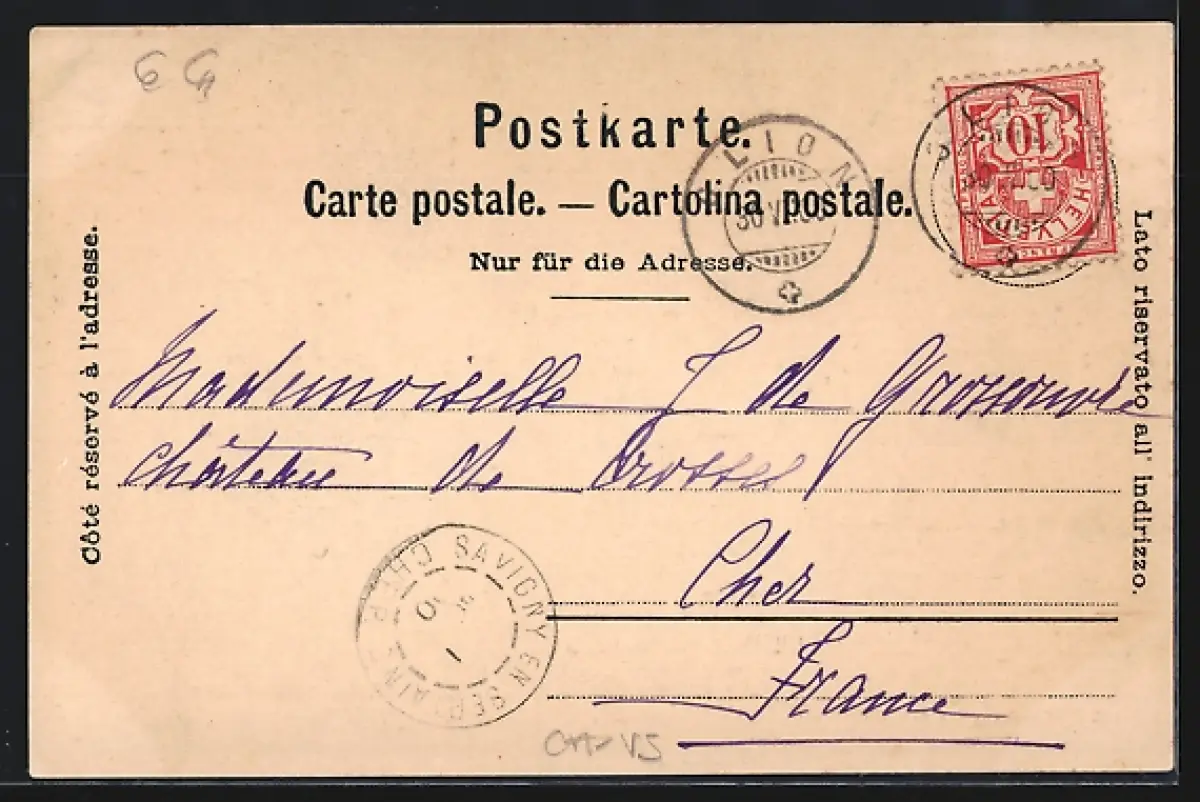 Postkarte.
Carte postale. — Cartolina postale.
Nur für die Adresse.
Côté réservé à l'adresse.
Lato riservato all' indirizzo.
GLION
30 VI
10
HELVETIA
Mademoiselle J de Grossouvre
château de
Cher
France
SAVIGNY EN SEPTAINE CHER